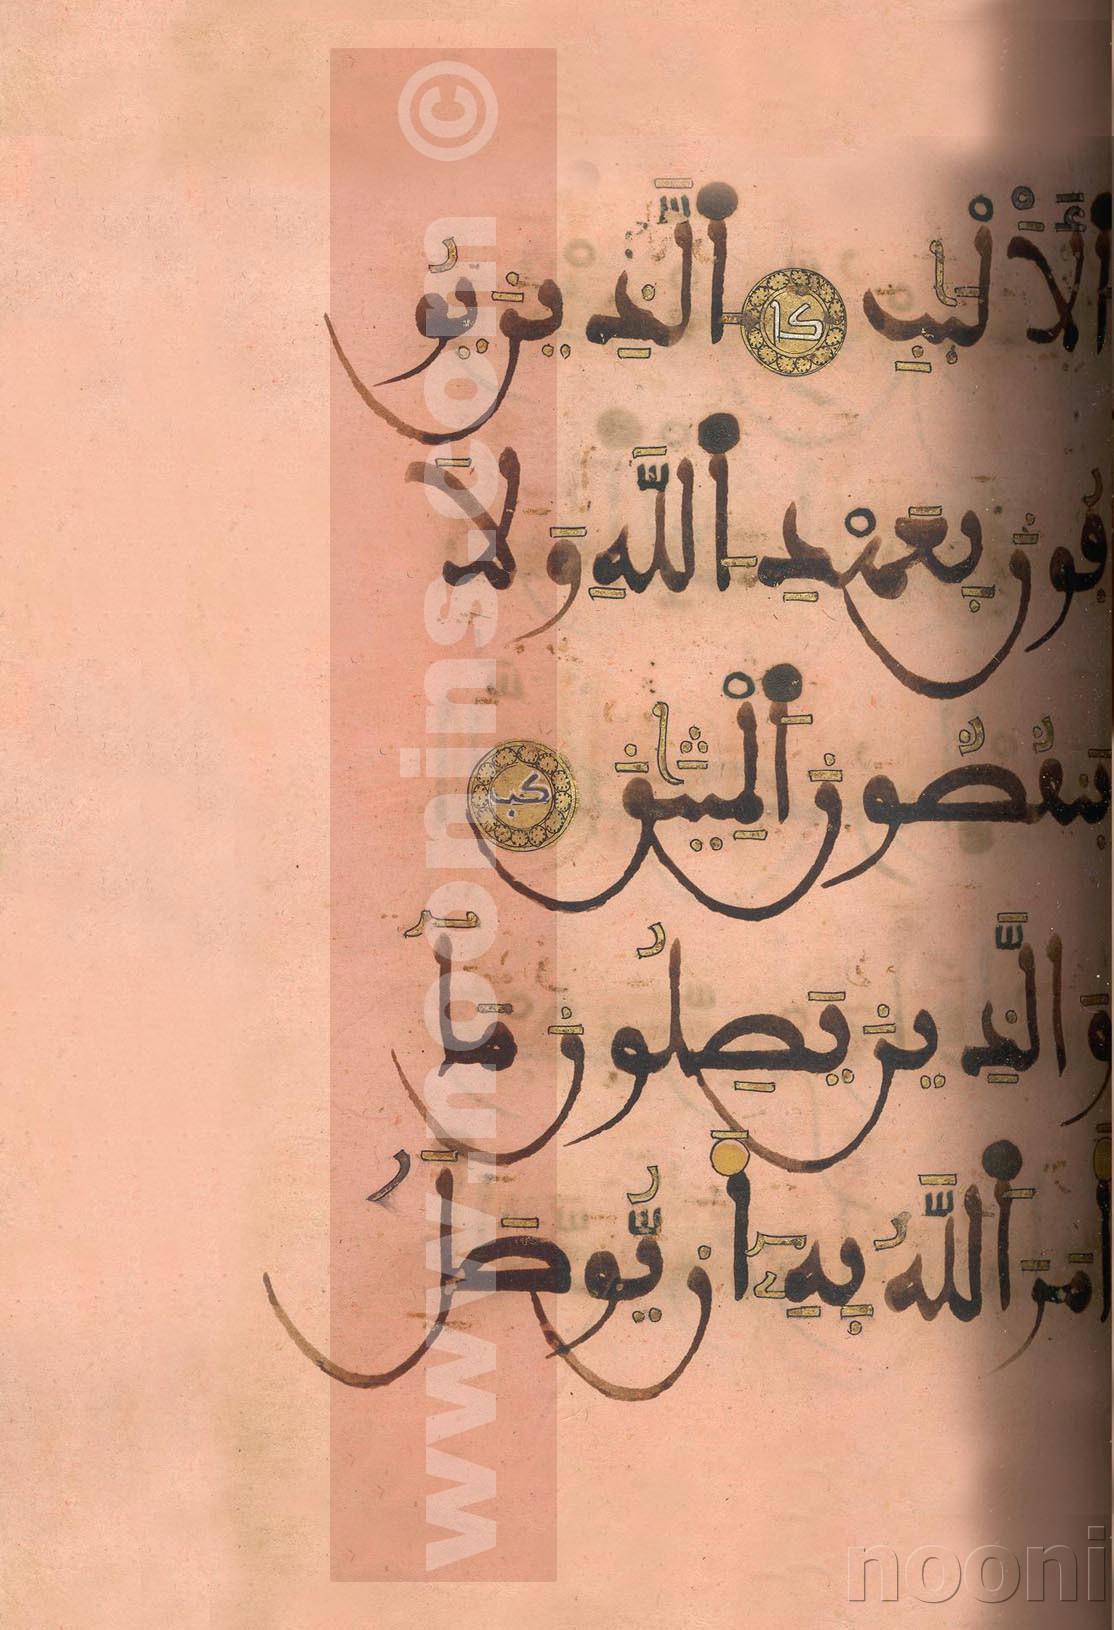 اَ۬لَالْبَٰبِ كا اَ۬لذِينَ يُو
فُونَ بِعَهْدِ اِ۬للَّهِ وَلَا
يَنقُضُونَ اَ۬لْمِيثَٰقَ كب
وَالذِينَ يَصِلُونَ مَآ
أَمَرَ اَ۬للَّهُ بِهِۦٓ أَنْ يُّوصَلَ
www.moonins.com ©
nooni